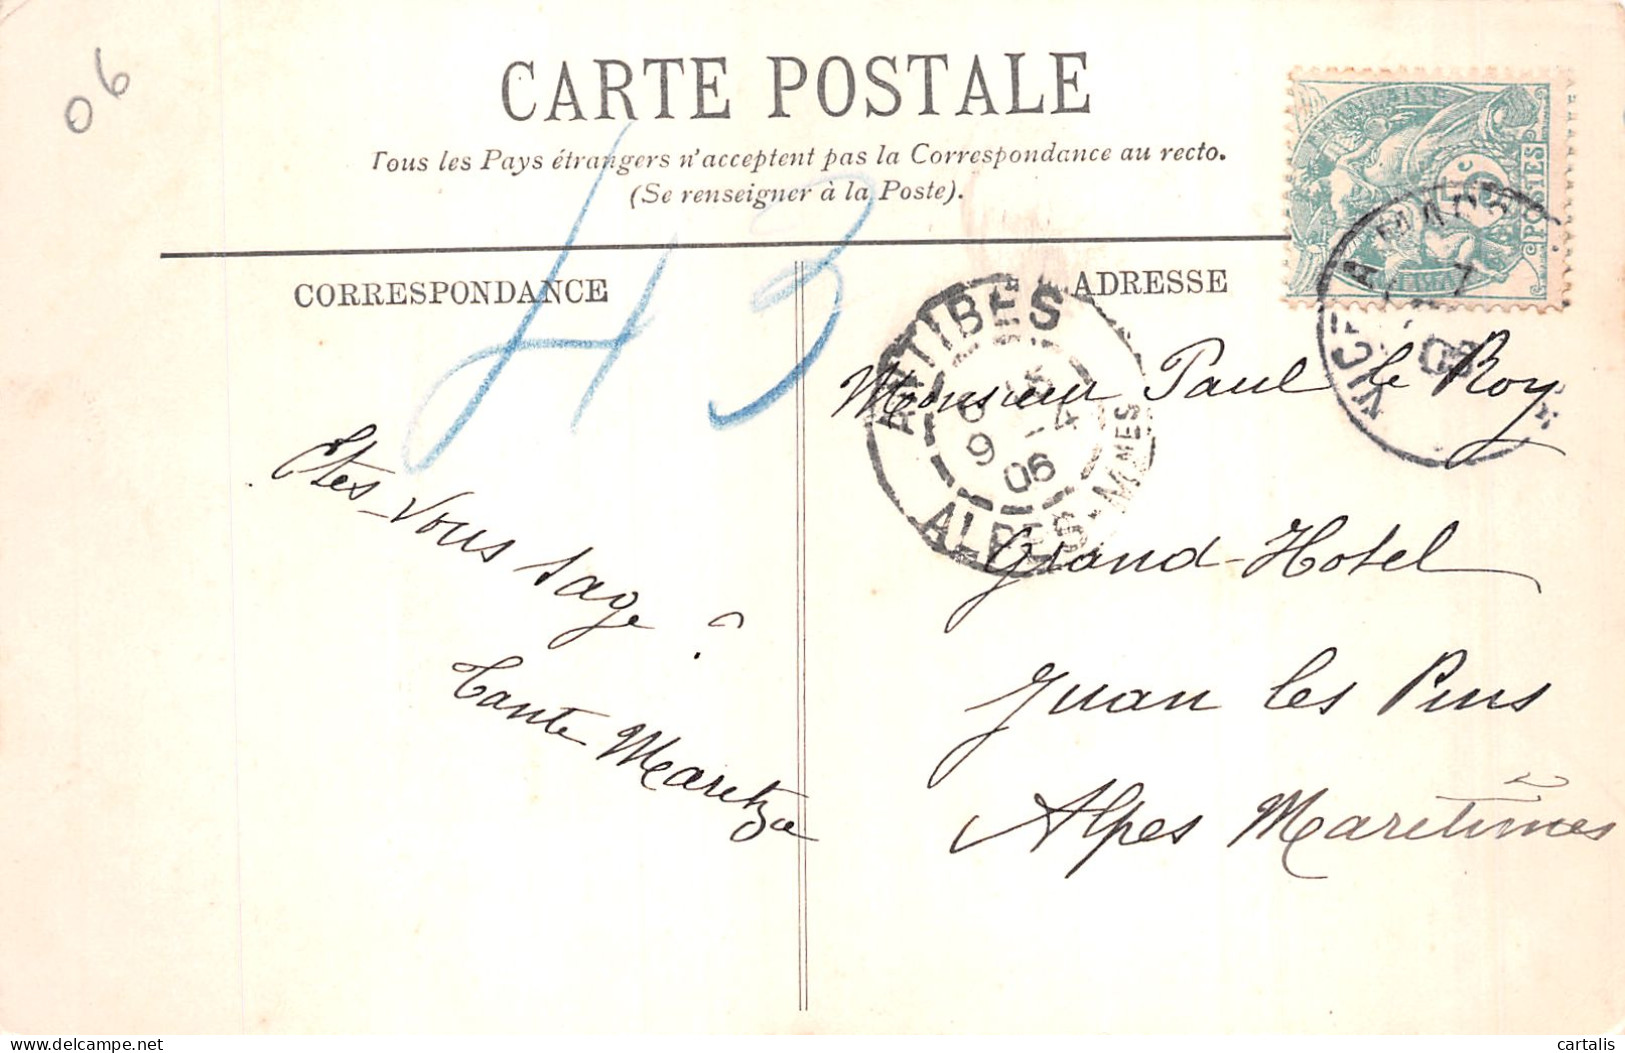 06
CARTE POSTALE
Tous les Pays étrangers n'acceptent pas la Correspondance au recto.
(Se renseigner à la Poste).
43
FRANÇAISE
5c
POSTES
CORRESPONDANCE
ADRESSE
ANTIBES
9 06
ALPES-MMES
Monsieur Paul le Roy
Grand-Hotel
Juan les Pins
Alpes Maritimes
Etes-vous sage ?
Tante Maretza
delcampe.net
cartalis